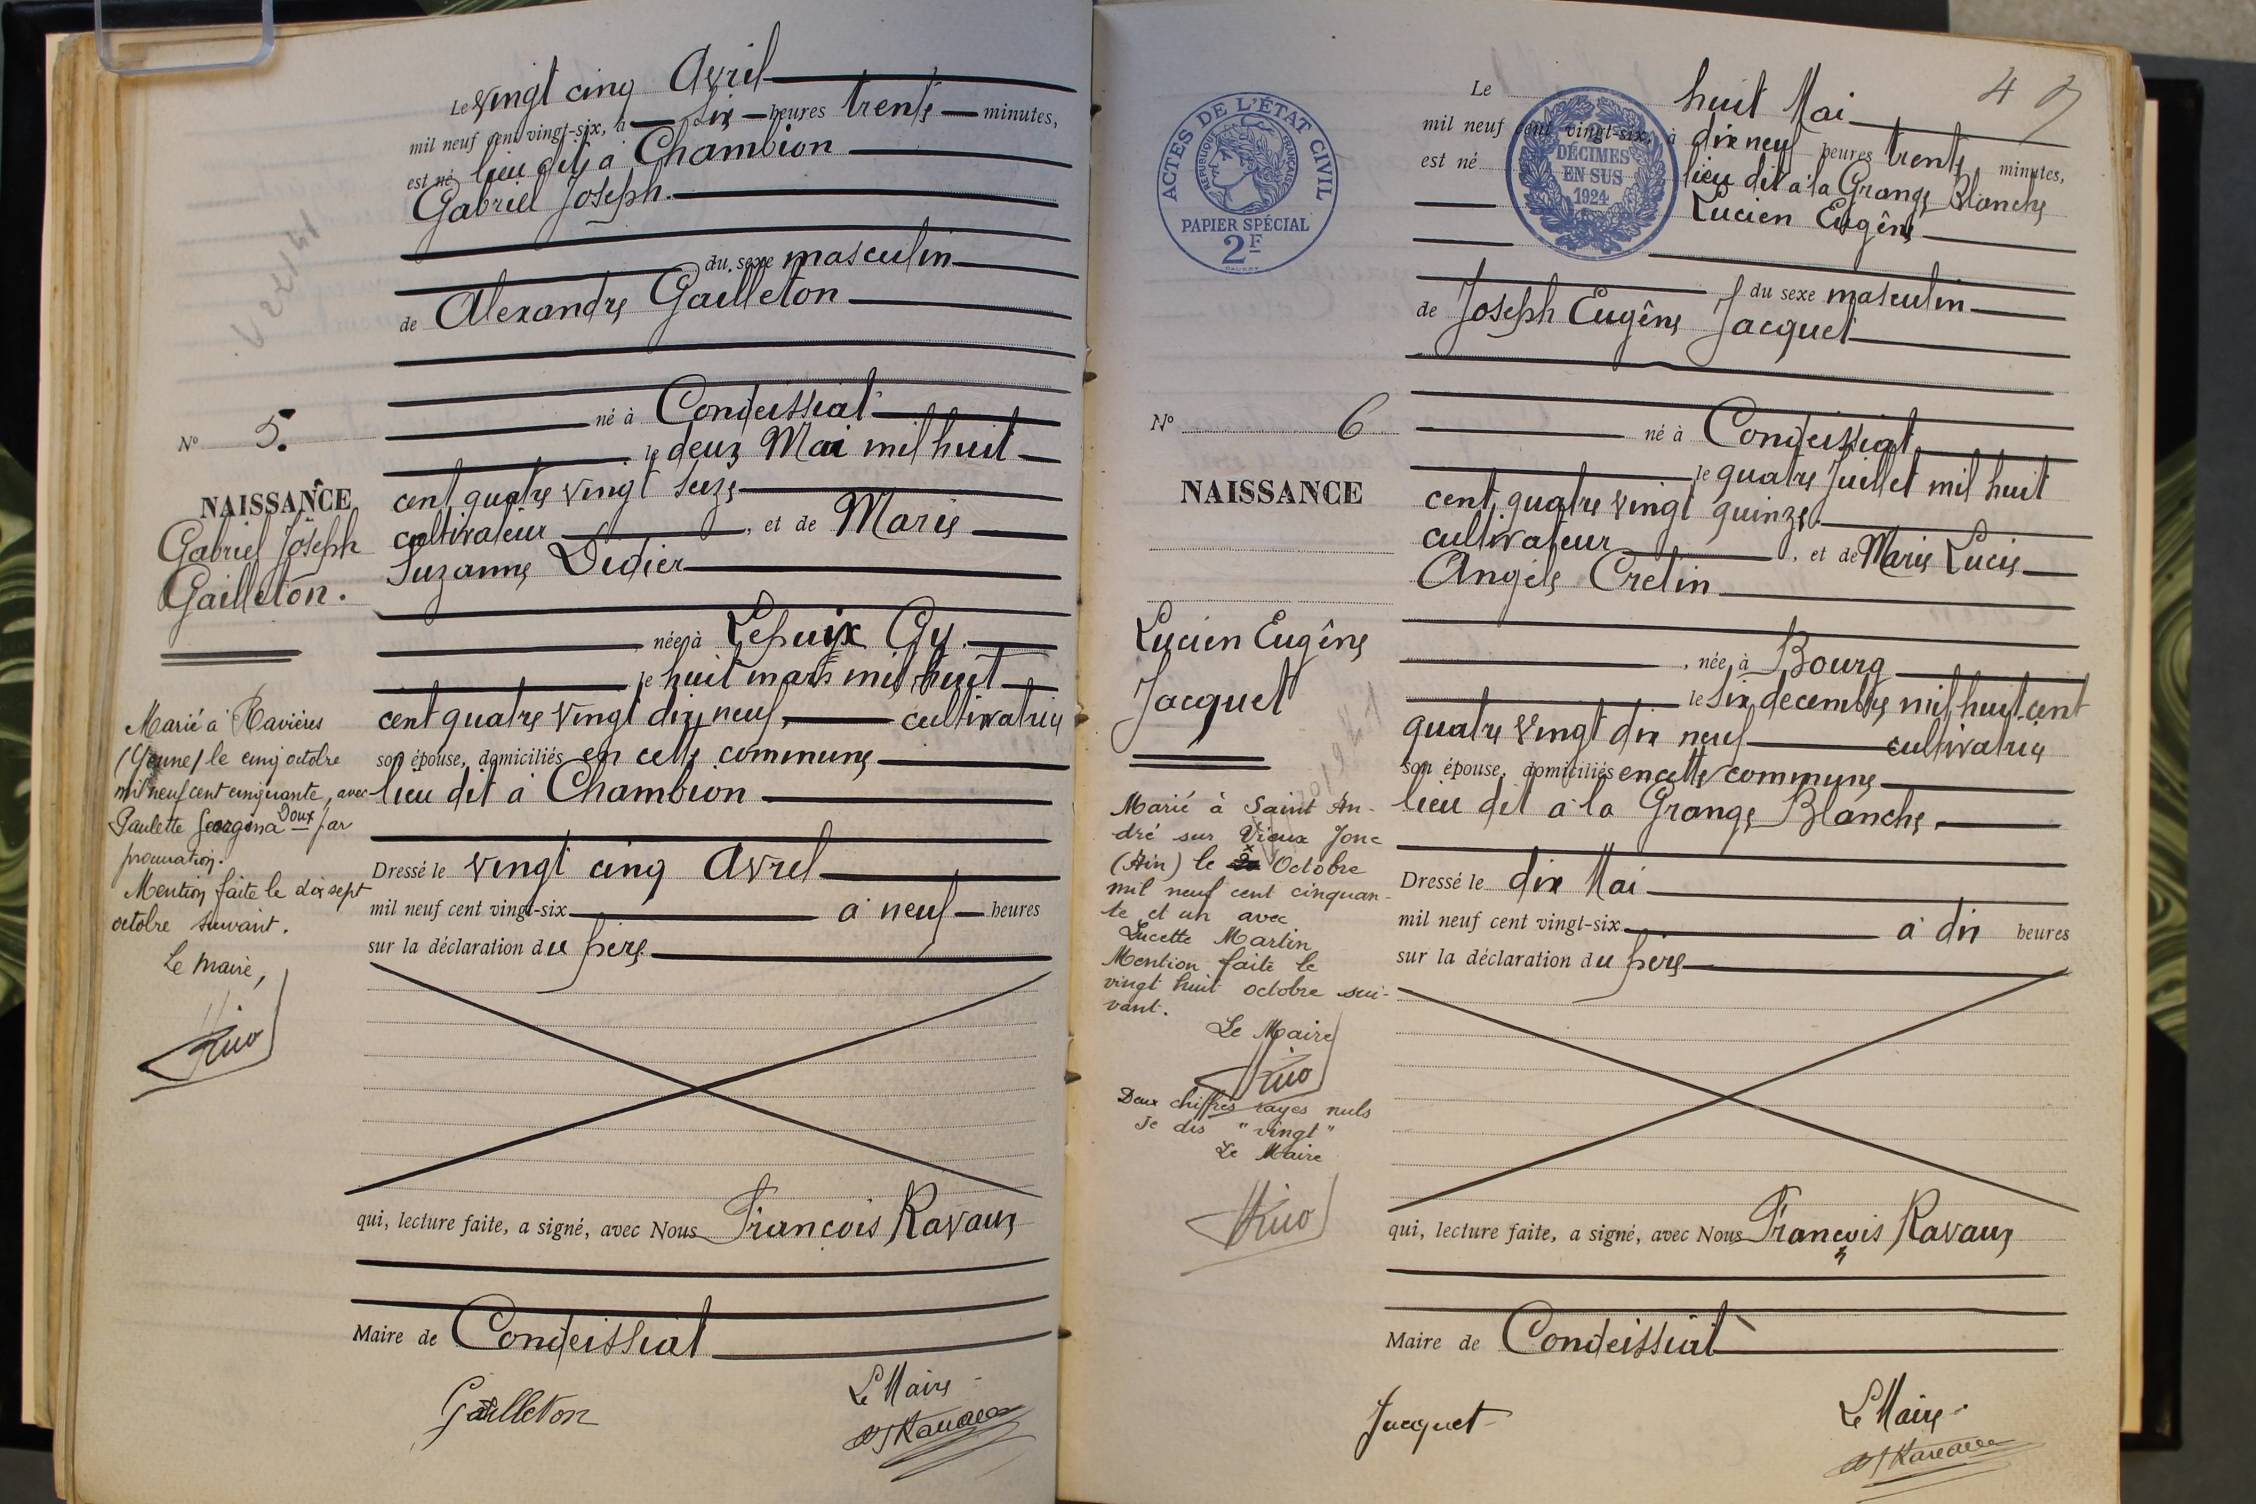 Le vingt cinq Avril
mil neuf cent vingt-six, à six heures trente minutes,
est né lieu dit à Chambion
Gabriel Joseph.
du sexe masculin
de Alexandre Gailleton
né à Condeissiat
le deux Mai mil huit
cent quatre vingt seize
cultivateur, et de Marie
Suzanne Didier
née à Lepuix Gy.
le huit mars mil huit
cent quatre vingt dix neuf, cultivatrice
son épouse, domiciliés en cette commune
lieu dit à Chambion
Dressé le vingt cinq Avril
mil neuf cent vingt-six à neuf heures
sur la déclaration du père
qui, lecture faite, a signé, avec Nous François Ravaux
Maire de Condeissiat
Le Maire
Gailleton
N° 5.
NAISSANCE
Gabriel Joseph
Gailleton.
Marié à Ravières
(Yonne) le cinq octobre
mil neuf cent cinquante, avec
Paulette Georgina Doux par
procuration.
Mention faite le dix sept
octobre suivant.
Le maire,
ACTES DE L'ÉTAT CIVIL
RÉPUBLIQUE FRANÇAISE
PAPIER SPÉCIAL
2F
2
DÉCIMES
EN SUS
1924
Le huit Mai
mil neuf cent vingt-six, à dix neuf heures trente minutes,
est né lieu dit à la Grange Blanche
Lucien Eugène
du sexe masculin
de Joseph Eugène Jacquet
né à Condeissiat
le quatre Juillet mil huit
cent quatre vingt quinze.
cultivateur, et de Marie Lucie
Angèle Cretin
née à Bourg
le six decembre mil huit cent
quatre vingt dix neuf cultivatrice
son épouse, domiciliés en cette commune
lieu dit à la Grange Blanche.
Dressé le dix Mai
mil neuf cent vingt-six à dix heures
sur la déclaration du père
qui, lecture faite, a signé, avec Nous François Ravaux
Maire de Condeissiat
Le Maire
Jacquet
N° 6
NAISSANCE
Lucien Eugène
Jacquet
Marié à Saint An-
dré sur Vieux Jonc
(Ain) le Octobre
mil neuf cent cinquan-
te et un avec
Lucette Martin
Mention faite le
vingt huit octobre sui-
vant.
Le Maire
Deux chiffres rayés nuls
Je dis "vingt"
Le Maire